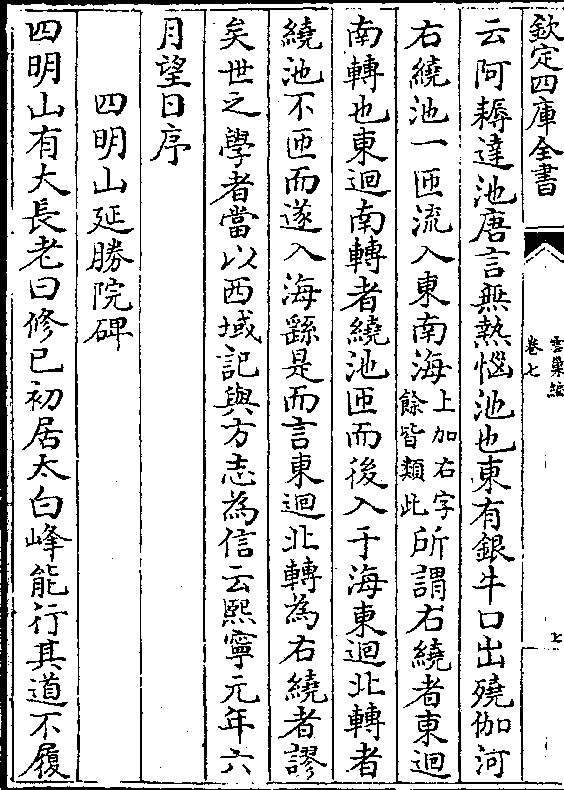 欽定四庫全書
雲巢編
卷七
七
云阿耨達池唐言無熱惱池也東有銀牛口出殑伽河
右繞池一匝流入東南海上加右字餘皆類此所謂右繞者東迴
南轉也東迴南轉者繞池匝而後入于海東迴北轉者
繞池不匝而遂入海繇是而言東迴北轉為右繞者謬
矣世之學者當以西域記與方志為信云熙寧元年六
月望日序
四明山延勝院碑
四明山有大長老曰修已初居太白峰能行其道不履